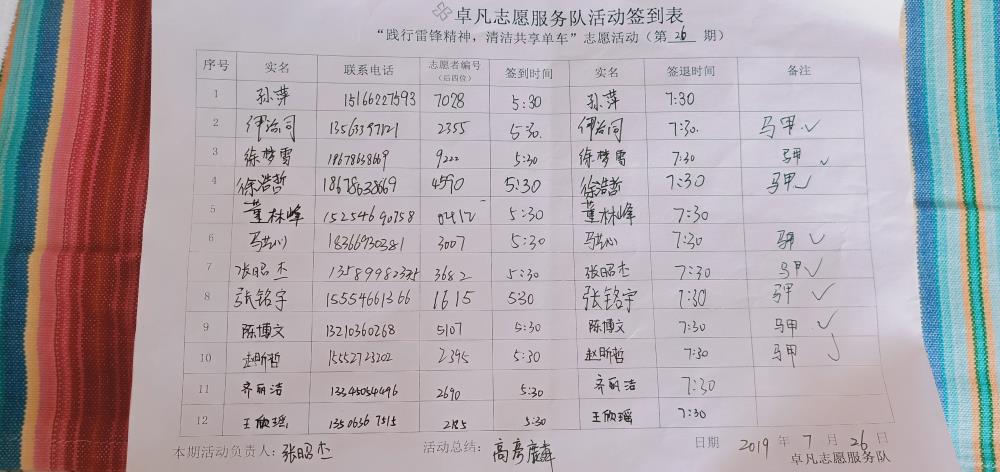 卓凡志愿服务队活动签到表
“践行雷锋精神，清洁共享单车”志愿活动（第 26 期）
序号 实名 联系电话 志愿者编号（后四位） 签到时间 实名 签退时间 备注
1 孙萍 15166227593 7028 5:30 孙萍 7:30
2 伊治同 13563397121 2355 5:30. 伊治同 7:30. 马甲 ✓
3 徐梦雪 18678638669 9222 5:30 徐梦雪 7:30 马甲 ✓
4 徐浩哲 18678638669 4590 5:30 徐浩哲 7:30 马甲 ✓
5 董林峰 15254690758 0412 5:30 董林峰 7:30
6 18366930381 3007 5:30 7:30 马甲 ✓
7 张昭杰 3682 5:30 张昭杰 7:30 马甲 ✓
8 张铭宇 15554661366 1615 530 张铭宇 7:30 马甲 ✓
9 陈博文 13210360268 5107 5:30 陈博文 7:30 马甲 ✓
10 赵昕哲 15552723202 2395 5:30 赵昕哲 7:30 马甲 ✓
11 齐丽洁 13345054496 2690 5:30 齐丽洁 7:30
12 王欣瑶 13506367515 2185 5:30 王欣瑶 7:30
本期活动负责人：张昭杰 活动总结：高彦麟 日期 2019 年 7 月 26 日
卓凡志愿服务队